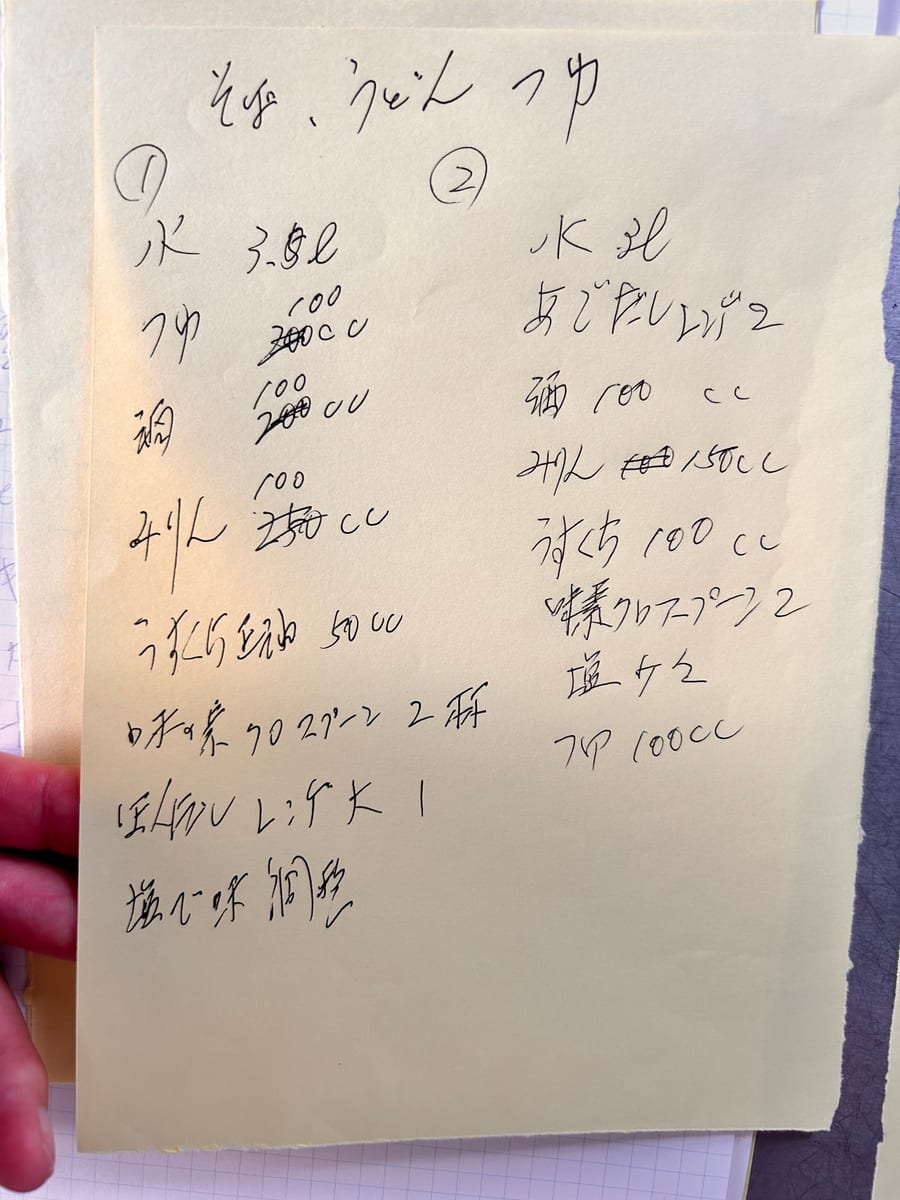 そば、うどん つゆ
①
水 3.5l
つゆ 100 200cc
酒 100 200cc
みりん 100 250cc
うすくち正油 50cc
味の素 クロスプーン 2杯
ほんだし レンゲ 大 1
塩で味 調整
②
水 3l
あごだし レンゲ 2
酒 100 cc
みりん 100 150cc
うすくち 100 cc
味素クロスプーン 2
塩 〃 2
つゆ 100cc